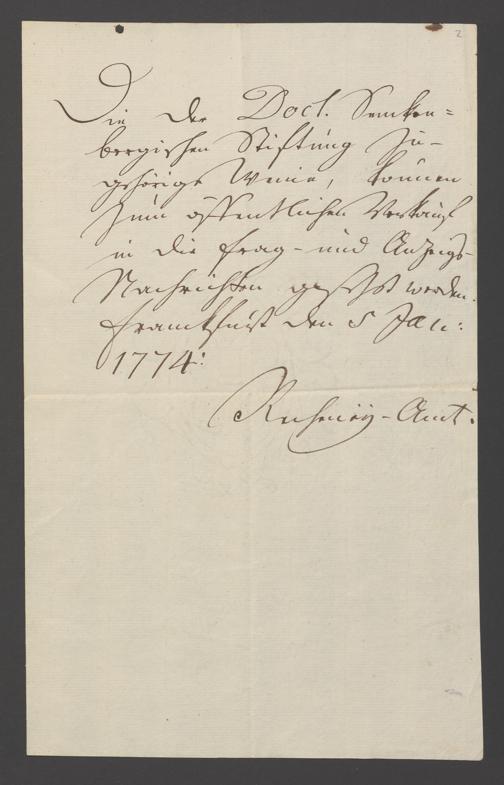 2
Die der Doct. Sencken=
bergischen Stiftung zu-
gehörige Weine, können
zum öffentlichen Verkauf
in die Frag- und Anzeigs-
Nachrichten gesetzt werden.
Franckfurt den 5 Jan:
1774:
Rechneÿ-Amt.